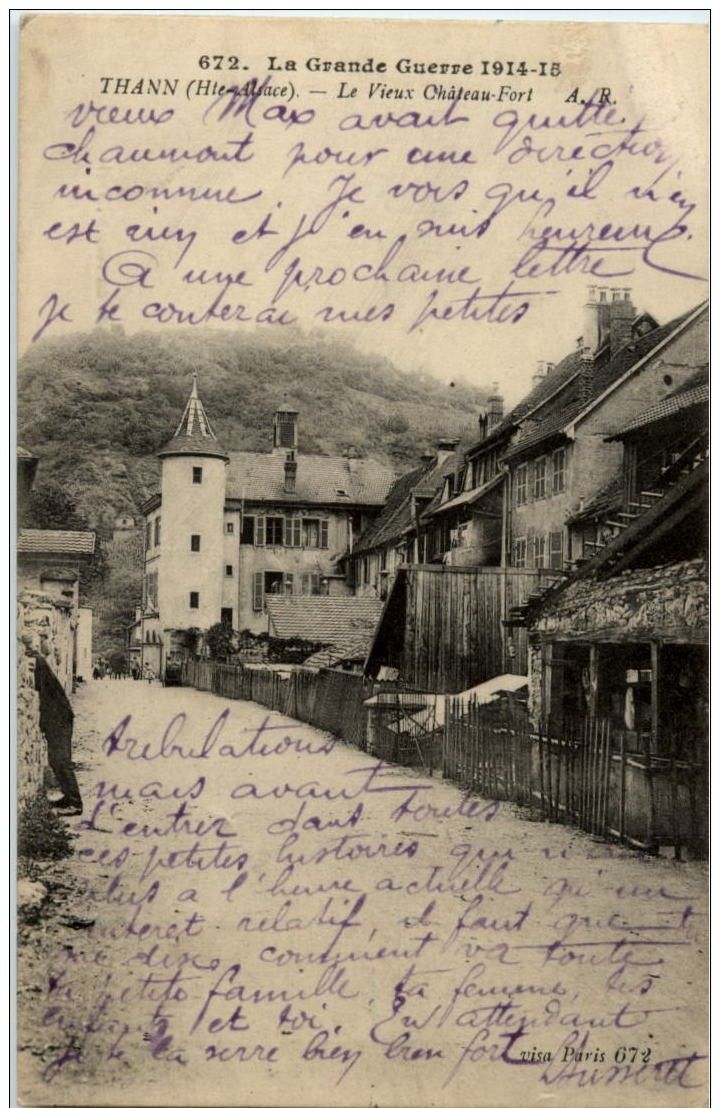 672. La Grande Guerre 1914-15
THANN (Hte-Alsace). — Le Vieux Château-Fort A. R.
vieux Max avait quitté
chaumont pour une direction
inconnue. Je vois qu'il n'en
est rien et j'en suis heureux.
A une prochaine lettre
je te conterai mes petites
tribulations
mais avant
d'entrer dans toutes
ces petites histoires qui n'ont
plus a l'heure actuelle qu'un
interet relatif, il faut que tu
me dises comment va toute
ta petite famille, ta femme, tes
enfants et toi. En attendant
je te la serre bien bien fort
visa Paris 672